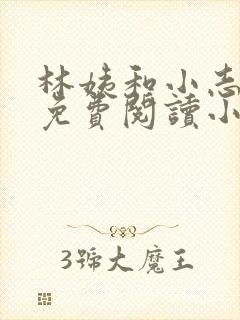 林姨和小志
免費閱讀小
3號大魔王